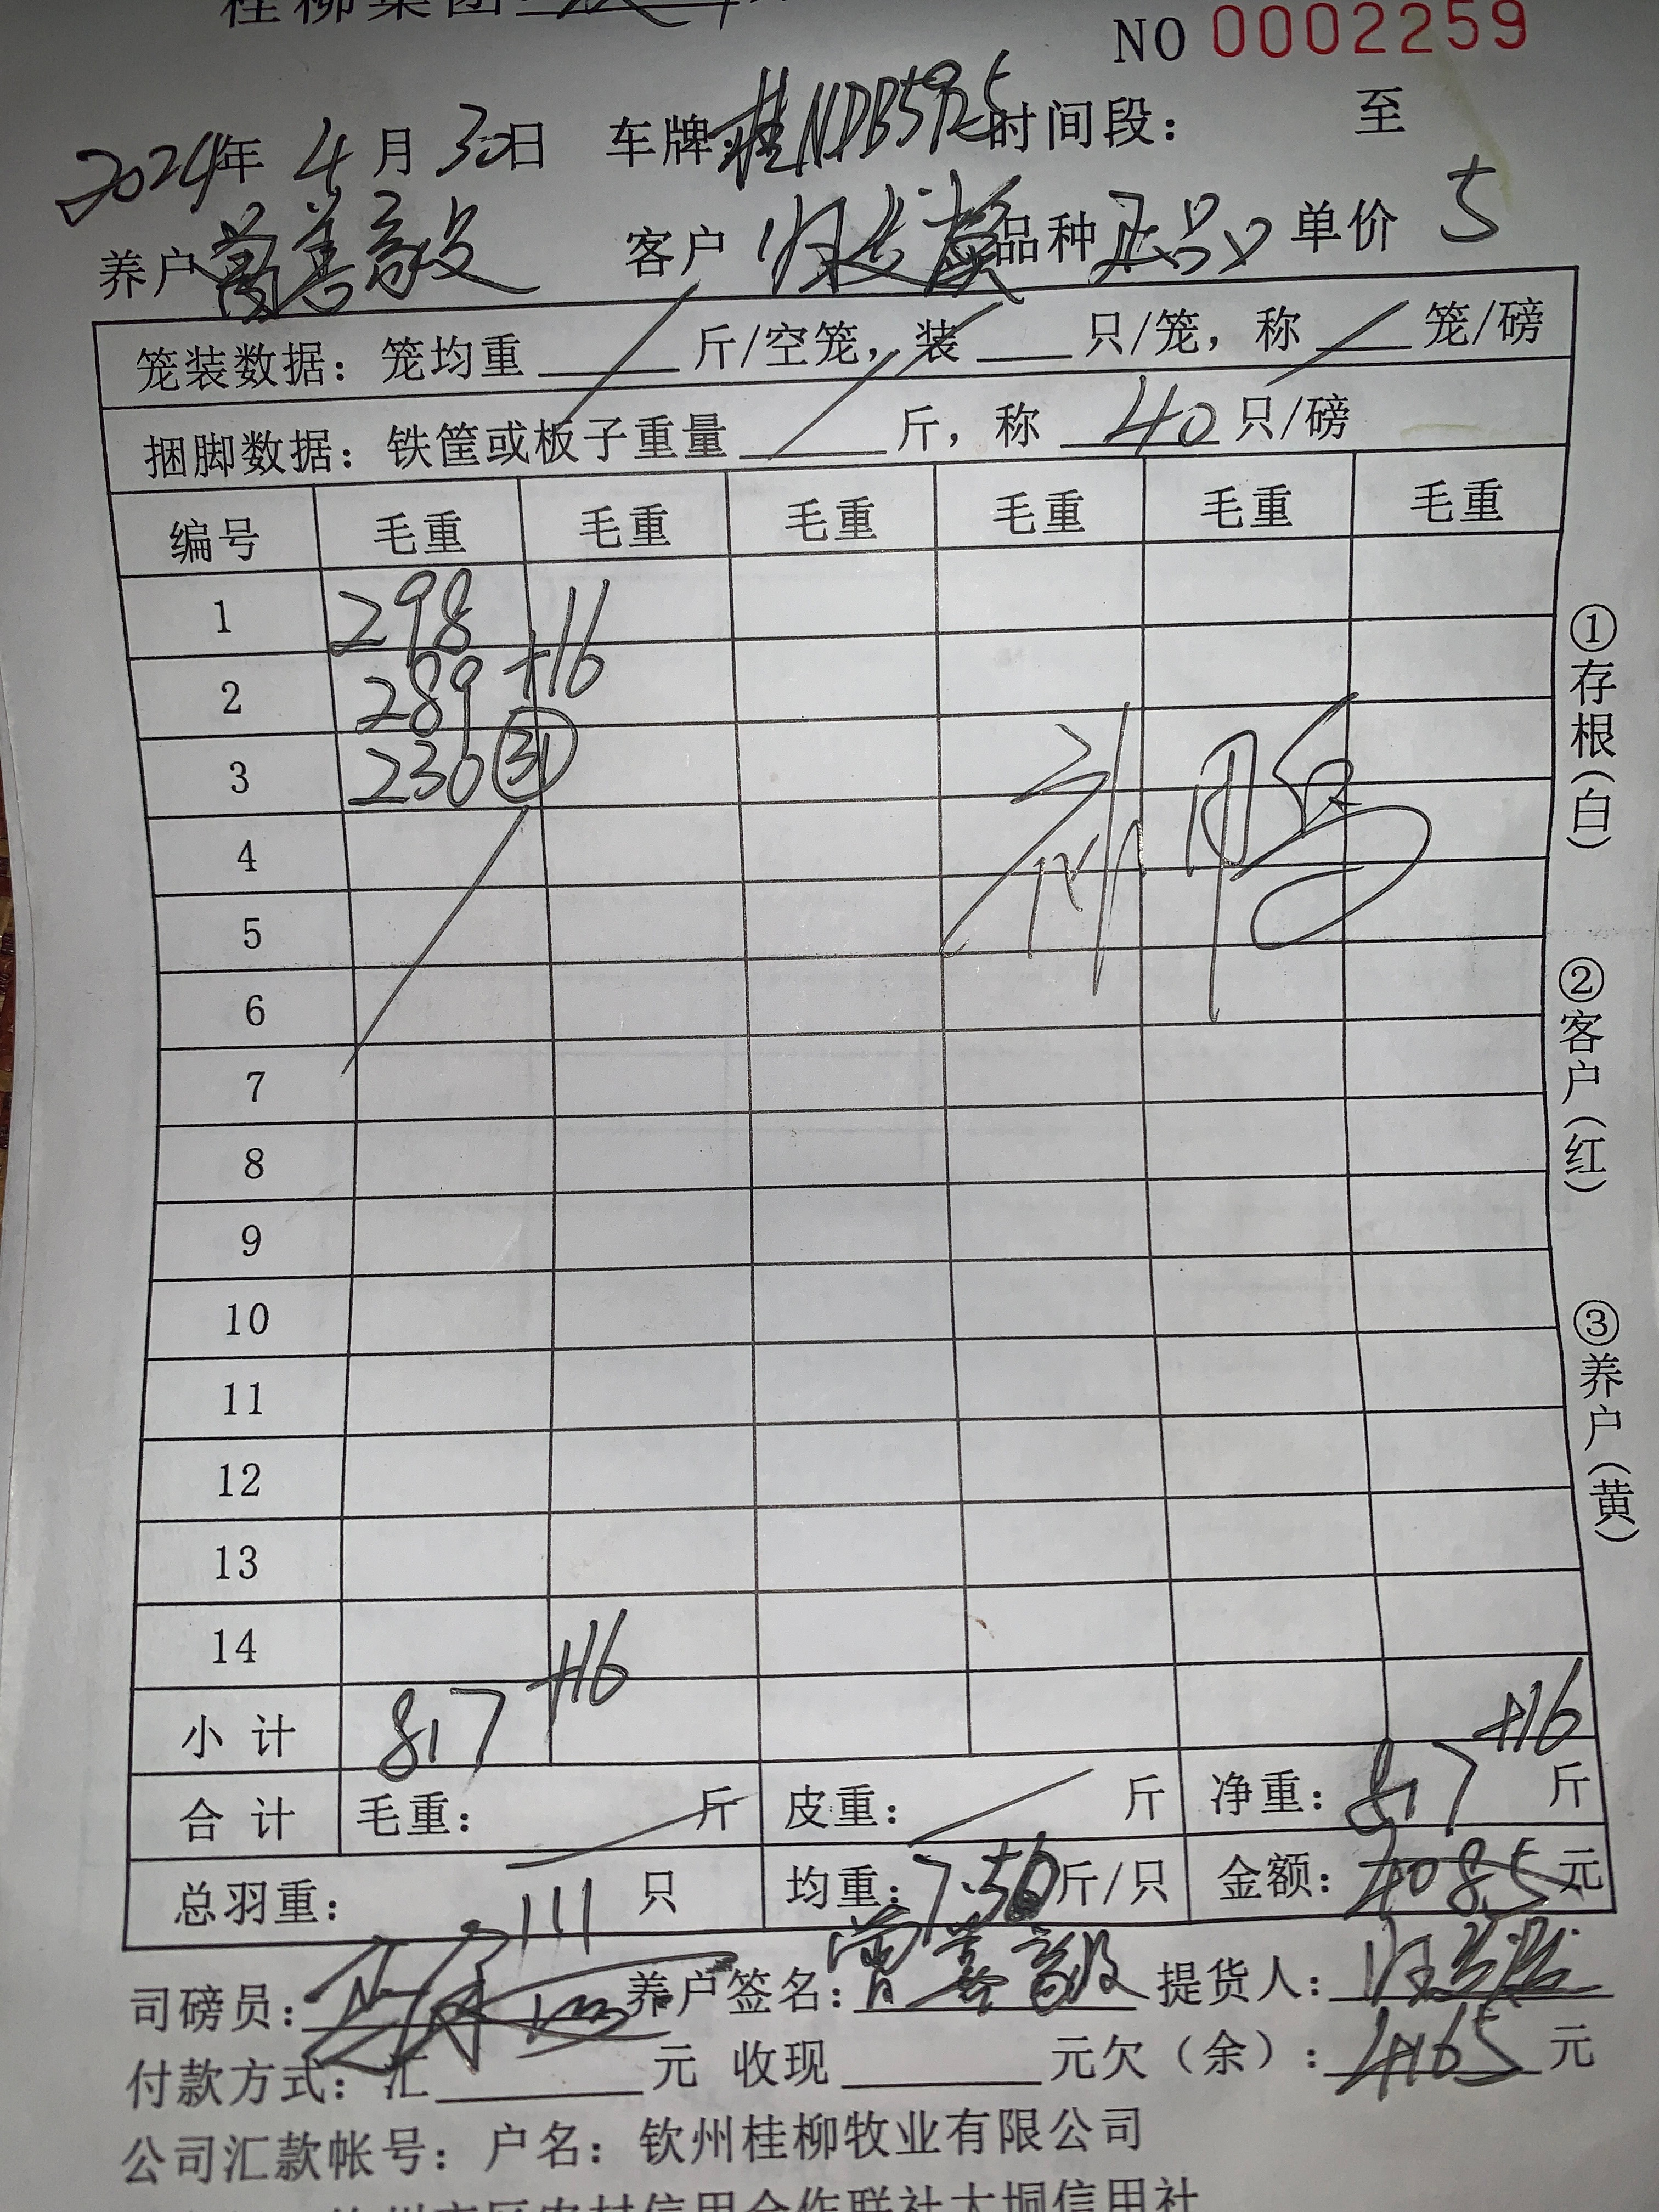 桂柳集团
NO 0002259
2024年 4月 30日 车牌:桂NDB5925 时间段: 至
养户 曾善毅 客户 品种 正品 单价 5
笼装数据: 笼均重 斤/空笼, 装 只/笼, 称 笼/磅
捆脚数据: 铁筐或板子重量 斤, 称 40 只/磅
编号 毛重 毛重 毛重 毛重 毛重 毛重
1 298
2 289 +16
3 230 ㉛
4
5
6
7
8
9
10
11
12
13
14
小计 817 +16
合计 毛重: 斤 皮重: 斤 净重: 817 +16 斤
总羽重: 111 只 均重: 7.50 斤/只 金额: 4085 元
司磅员: 养户签名: 曾善毅 提货人:
付款方式: 汇 元 收现 元欠(余): 4165 元
公司汇款帐号: 户名: 钦州桂柳牧业有限公司
①存根(白)
②客户(红)
③养户(黄)